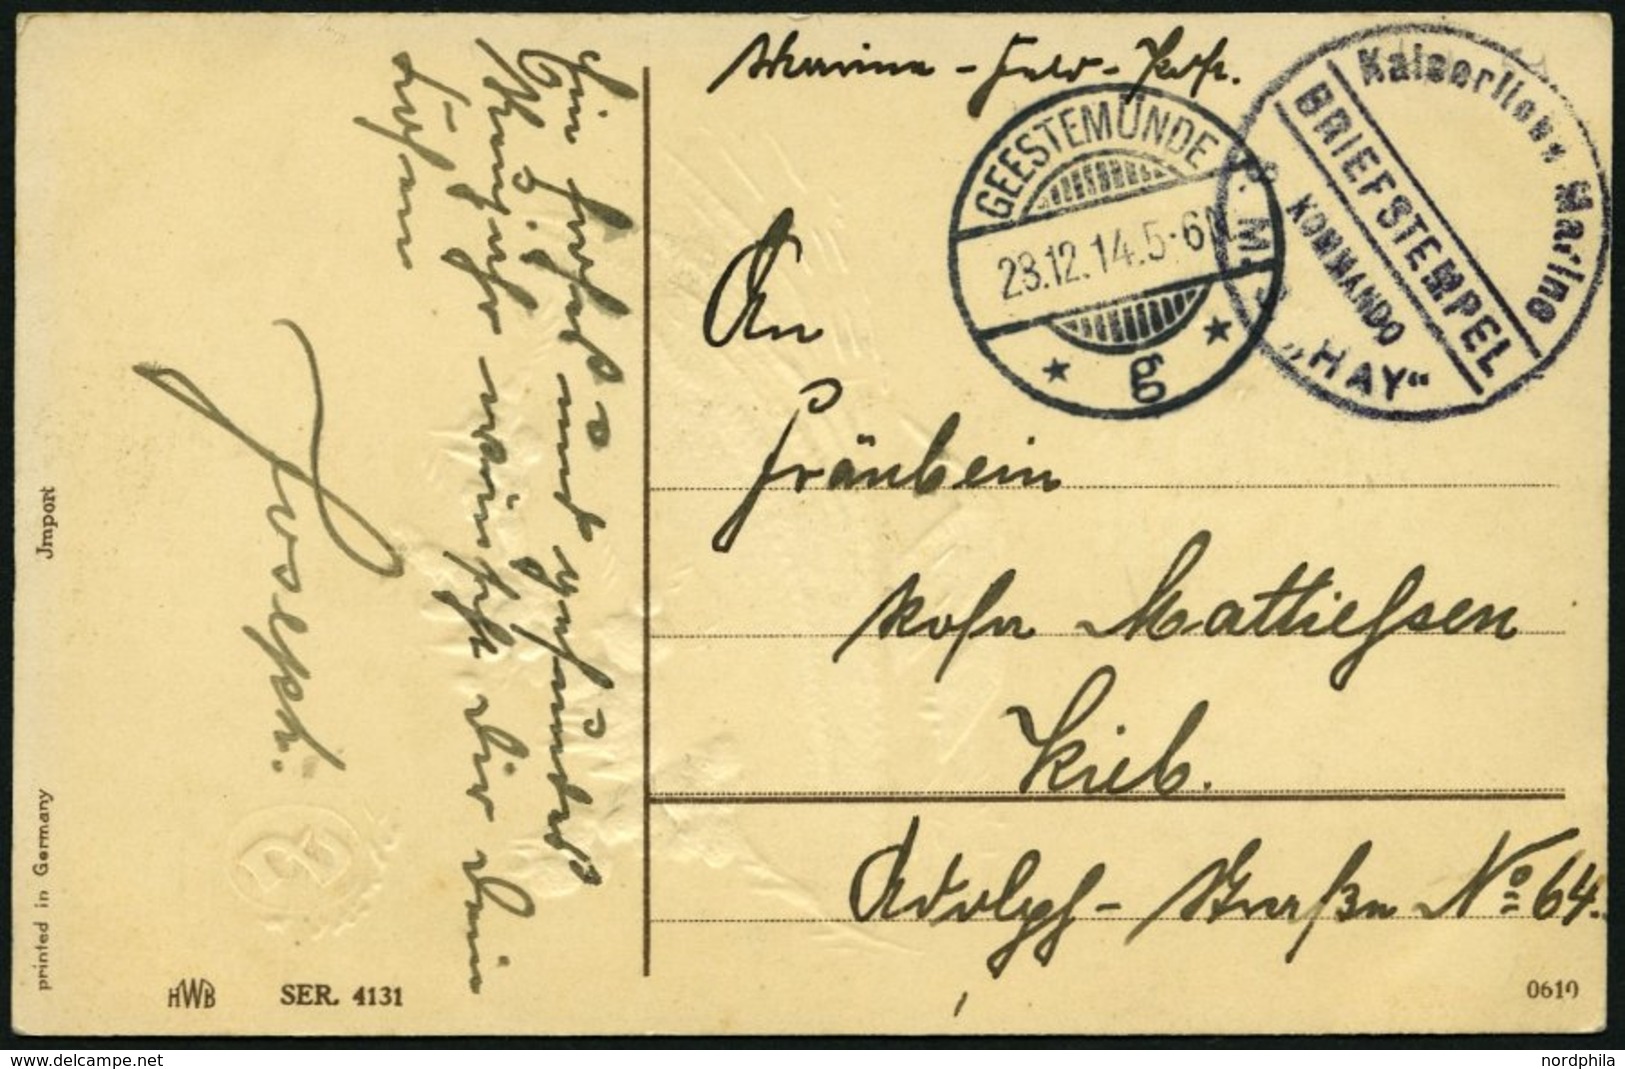 Marine-Feld-Post.
Kaiserliche Marine
BRIEFSTEMPEL
KOMMANDO
S. M. S.
„HAY“
GEESTEMÜNDE
23.12.14.5-6N.
* g *
An
Fräulein
Rosa Mathießen
Kiel.
Adolph-Straße No 64.
Ein frohes und gesundes
Neujahr wünscht Dir Dein
Joseph.
Jmport
printed in Germany
HWB
SER. 4131
0610
www.delcampe.net
nordphila